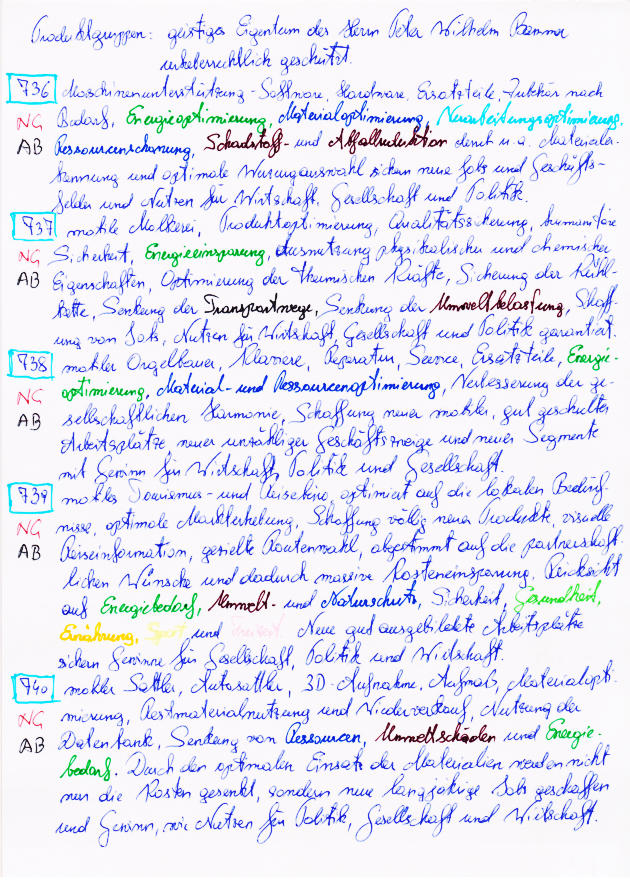 Produktgruppen: geistiges Eigentum des Herrn Peter Wilhelm Bammer
urheberrechtlich geschützt.
736 Maschinenunterstützung - Software, Hardware, Ersatzteile, Zubehör nach
NG Bedarf, Energieoptimierung, Materialoptimierung, Neuarbeitungsoptimierung,
AB Ressourcenschonung, Schadstoff- und Abfallreduktion damit u.a. Materialer-
kennung und optimale Werkzeugauswahl sichern neue Jobs und Geschäfts-
felder und Nutzen für Wirtschaft, Gesellschaft und Politik.
737 mobile Molkerei, Produktoptimierung, Qualitätssicherung, humanitäre
NG Sicherheit, Energieeinsparung, Ausnutzung physikalischer und chemischer
AB Eigenschaften, Optimierung der thermischen Kräfte, Sicherung der Kühl-
kette, Senkung der Transportwege, Senkung der Umweltbelastung, Schaff-
ung von Jobs, Nutzen für Wirtschaft, Gesellschaft und Politik garantiert.
738 mobiler Orgelbauer, Klaviere, Reparatur, Service, Ersatzteile, Energie-
NG optimierung, Material- und Ressourcenoptimierung, Verbesserung der ge-
AB sellschaftlichen Harmonie, Schaffung neuer mobiler, gut geschulter
Arbeitsplätze neuer unzähliger Geschäftszweige und neuer Segmente
mit Gewinn für Wirtschaft, Politik und Gesellschaft.
739 mobiles Tourismus- und Reisebüro, optimiert auf die lokalen Bedürf-
NG nisse, optimale Markterhebung, Schaffung völlig neuer Produkte, visuelle
AB Reiseinformation, gezielte Routenwahl, abgestimmt auf die partnerschaft-
lichen Wünsche und dadurch massive Kosteneinsparung. Rücksicht
auf Energiebedarf, Umwelt- und Naturschutz, Sicherheit, Gesundheit,
Ernährung, Sport und Freizeit. Neue gut ausgebildete Arbeitsplätze
sichern Gewinne für Gesellschaft, Politik und Wirtschaft.
740 mobiler Sattler, Autosattler, 3D-Aufnahme, Aufmaß, Materialopti-
NG mierung, Restmaterialnutzung und Wiederverkauf, Nutzung der
AB Datenbank, Senkung von Ressourcen, Umweltschäden und Energie-
bedarf. Durch den optimalen Einsatz der Materialien werden nicht
nur die Kosten gesenkt, sondern neue langjährige Jobs geschaffen
und Gewinn, wie Nutzen für Politik, Gesellschaft und Wirtschaft.